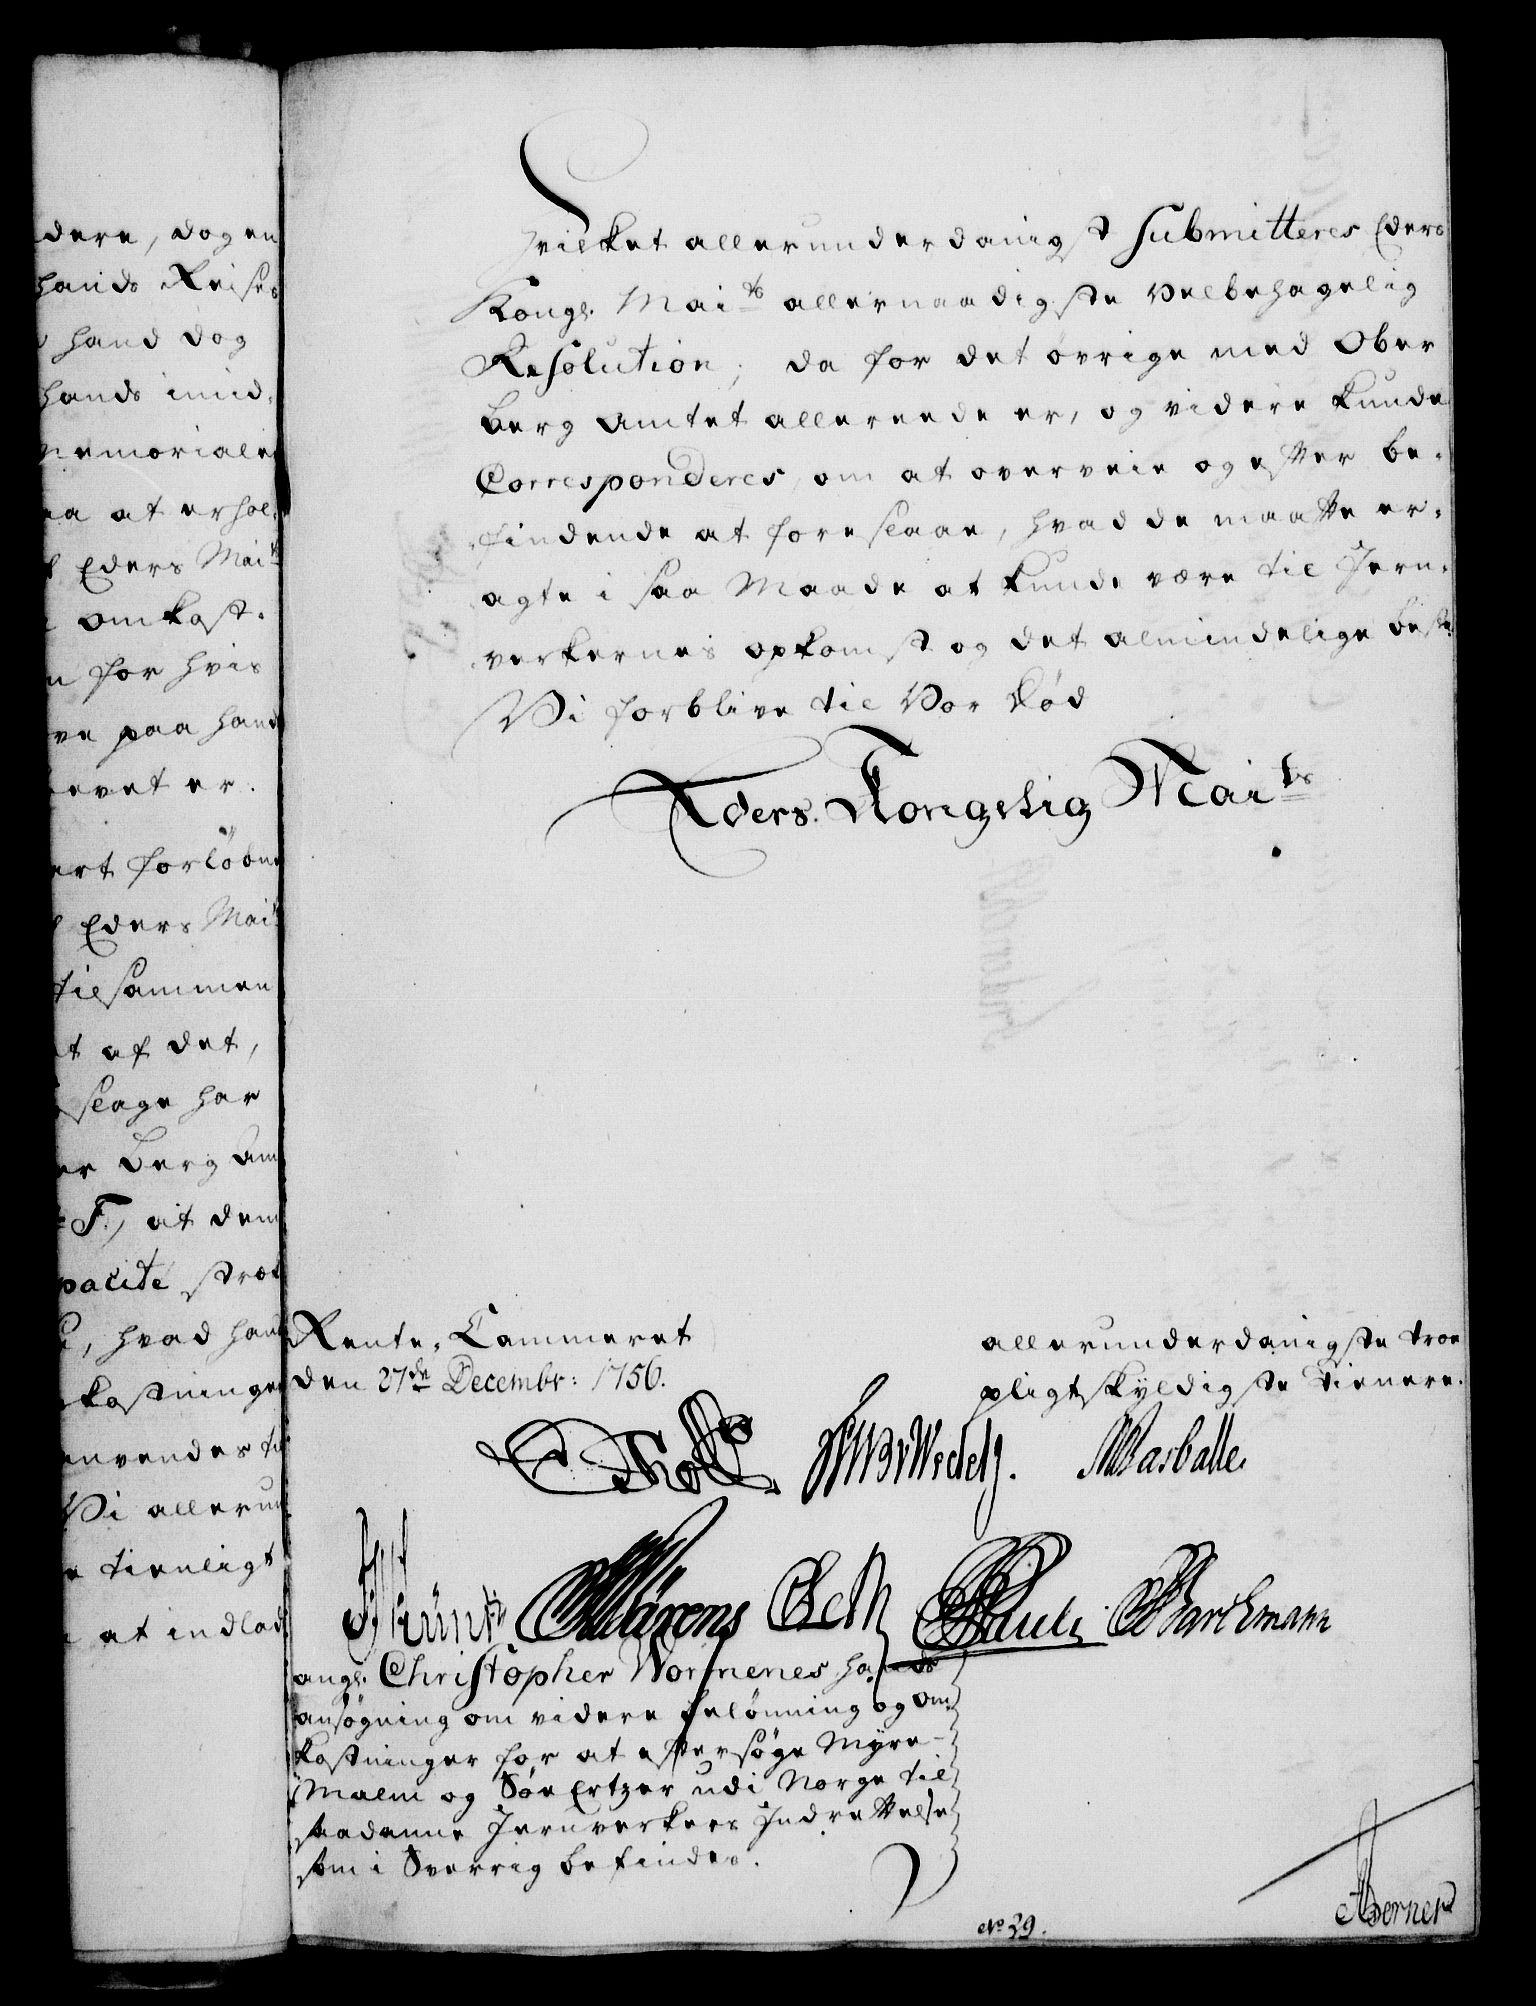 dere, dog en
hands Reises
hand dog
hands imid,
memoriale
at erhol,
Eders Mai.ts
omkost,
for hvis
ve paa hands
evet er.
ert forløbne
Eders Mai.ts
tilsammen
t af det,
slage har
er Berg Am
F., at dem
pacité
hvad hand
kostninger
anvendes til
Vi allerun
tienligt
at indlad
Hvilket allerunderdanigst Submitteres Eders
Kongl. Mai.ts allernaadigste Velbehagelig
Resolution, da for det øvrige med Ober
Berg Amtet allereede er, og videre kunde
Corresponderes, om at overveie og efter be,
findende at foreslaae, hvad de maatte er,
agte i saa Maade at kunde være til Jern,
verkernes opkomst og det almindelige beste.
Vi forblive til Vor Død
Eders Kongelig Mai.ts
Rente, Cammeret
den 27de Decembr: 1756.
allerunderdanigste troe
pligtskyldigste Tienere.
Tholl. Wedel. Barballe.
Künt. Mörens Oeth Pauli Barthmann
angl. Christopher Wormenes hands
ansøgning om videre belønning og om,
kostninger for at eftersøge Myre-
Malm og Søe Ertzer udi Norge til
saadanne Jernverkers Indrettelse
som i Sverrig befindes.
Borner
No 39.